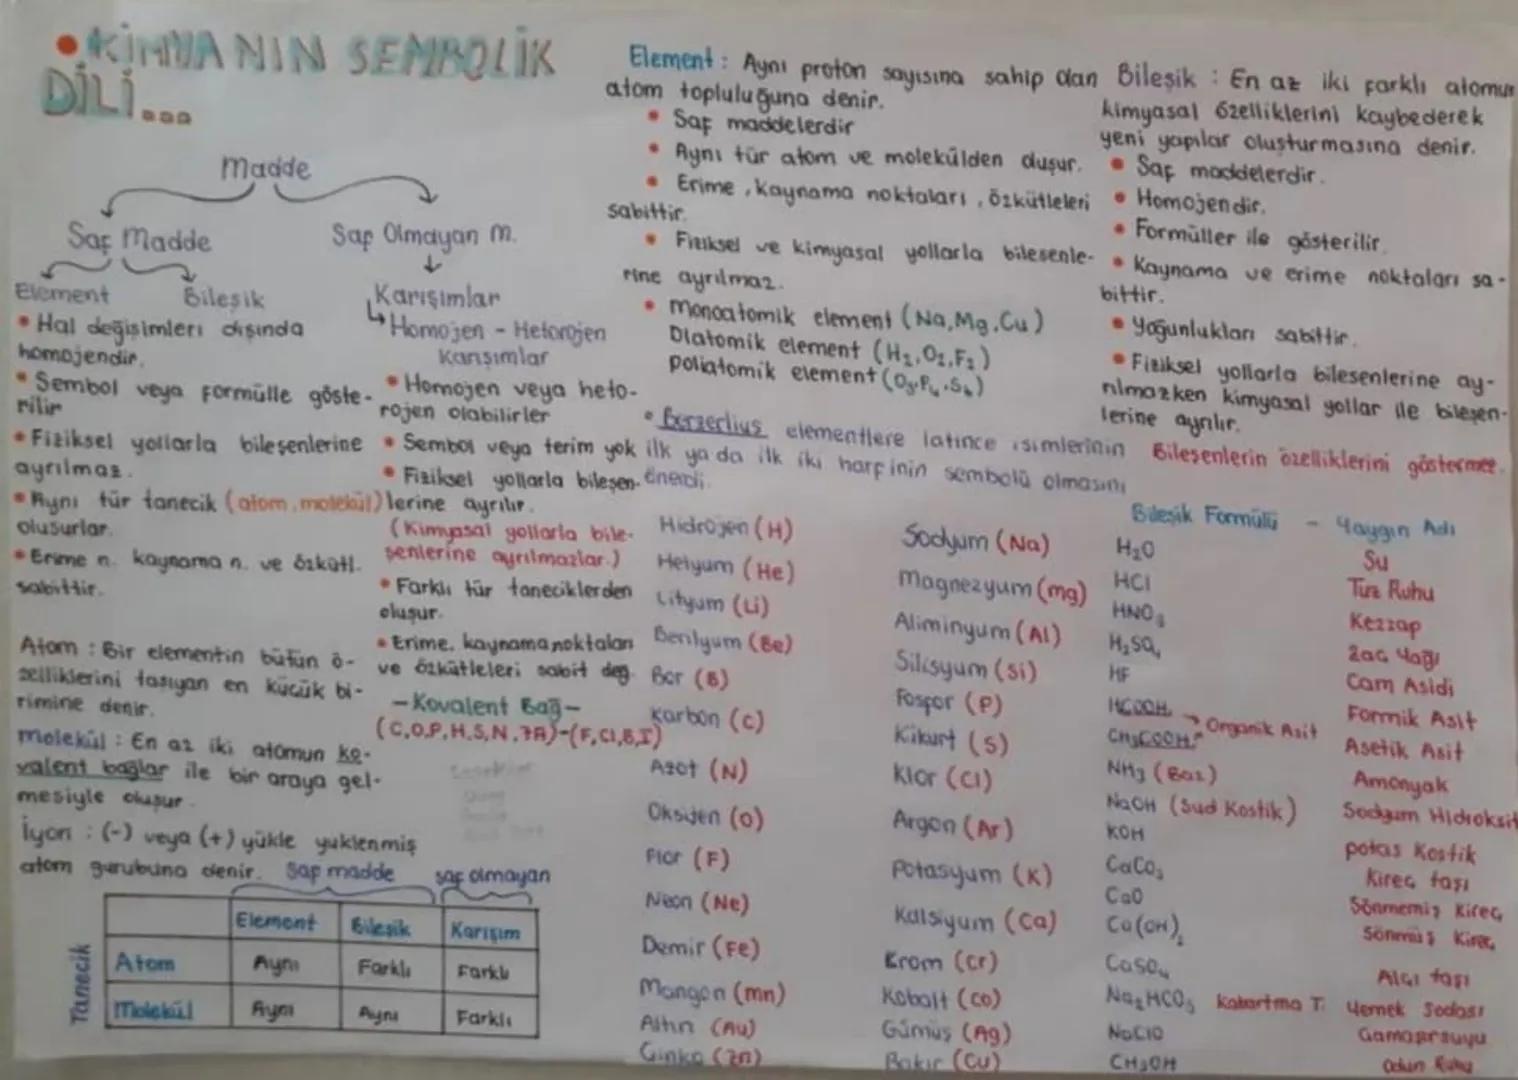 • KİMYANIN SEMBOLİK
DİLİ...
Madde
Saf Madde
Saf Olmayan M.
Element
Bileşik
Karışımlar
Homojen - Heterojen
Karışımlar
• Hal değişimleri dışında
homojendir.
• Sembol veya formülle göste-
rilir
• Fiziksel yollarla bileşenlerine
ayrılmaz.
• Aynı tür tanecik (atom, molekül)
olusurlar.
• Erime n. kaynama n. ve özkütl.
sabittir.
• Homojen veya hete-
rojen olabilirler
• Sembol veya terim yok
• Fiziksel yollarla bileşen-
lerine ayrılır.
(Kimyasal yollarla bile-
şenlerine ayrılmazlar.)
• Farklı tür taneciklerden
oluşur.
• Erime, kaynama noktaları
ve özkütleleri sabit değ.
Atom : Bir elementin bütün ö-
zelliklerini taşıyan en küçük bi-
rimine denir.
Molekül : En az iki atomun ko-
valent bağlar ile bir araya gel-
mesiyle oluşur.
İyon : (-) veya (+) yükle yuklenmiş
atom gurubuna denir.
- Kovalent Bağ -
(C,O,P,H,S,N,7A)-(F,Cl,B,I)
Saf madde
saf olmayan
Element Bileşik Karışım
Tanecik
Atom Aynı Farklı Farklı
Molekül Aynı Aynı Farklı
Element : Aynı proton sayısına sahip olan
atom topluluğuna denir.
• Saf maddelerdir
• Aynı tür atom ve molekülden oluşur.
• Erime, kaynama noktaları, özkütleleri
sabittir.
• Fiziksel ve kimyasal yollarla bilesenle-
rine ayrılmaz.
• Monoatomik element (Na,Mg,Cu)
Diatomik element (H₂,O₂,F₂)
Poliatomik element (O₃,P₄,S₆)
• Berzerlius elementlere latince isimlerinin
ilk ya da ilk iki harfinin sembolü olmasını
önerdi.
Hidrojen (H)
Helyum (He)
Lityum (Li)
Berilyum (Be)
Bor (B)
Karbon (C)
Azot (N)
Oksijen (O)
Flor (F)
Neon (Ne)
Demir (Fe)
Mangan (mn)
Altın (Au)
Çinko (Zn)
Sodyum (Na)
Magnezyum (mg)
Aliminyum (Al)
Silisyum (Si)
Fosfor (P)
Kükürt (S)
Klor (Cl)
Argon (Ar)
Potasyum (K)
Kalsiyum (Ca)
Krom (Cr)
Kobalt (Co)
Gümüş (Ag)
Bakır (Cu)
Bileşik : En az iki farklı atomun
kimyasal özelliklerini kaybederek
yeni yapılar oluşturmasına denir.
• Saf maddelerdir.
• Homojendir.
• Formüller ile gösterilir.
• Kaynama ve erime noktaları sa-
bittir.
• Yoğunlukları sabittir.
• Fiziksel yollarla bilesenlerine ay-
rılmazken kimyasal yollar ile bileşen-
lerine ayrılır.
Bileşenlerin özelliklerini göstermez.
Bileşik Formülü - Yaygın Adı
H₂O Su
HCl Tuz Ruhu
HNO₃ Kezzap
H₂SO₄ Zaç Yağı
HF Cam Asidi
HCOOH Formik Asit
CH₃COOH → Organik Asit Asetik Asit
NH₃ (Baz) Amonyak
NaOH (Sud Kostik) Sodyum Hidroksit
KOH potas Kostik
CaCO₃ Kireç taşı
CaO Sönmemiş Kireç
Ca(OH)₂ Sönmüş Kireç
CaSO₄ Alçı taşı
Na₂HCO₃ Kabartma T. Yemek Sodası
NaClO Çamaşırsuyu
CH₃OH Odun Ruhu